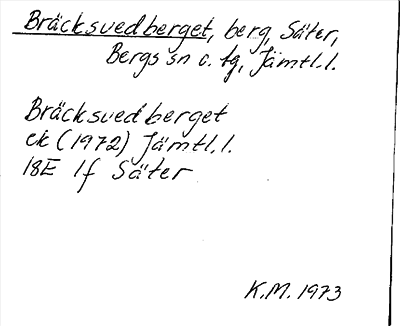 Bräcksvedberget, berg, Säter,
Bergs sn o. tg, Jämtl.l.
Bräcksvedberget
ek (1972) Jämtl.l.
18E 1f Säter
K.M. 1973